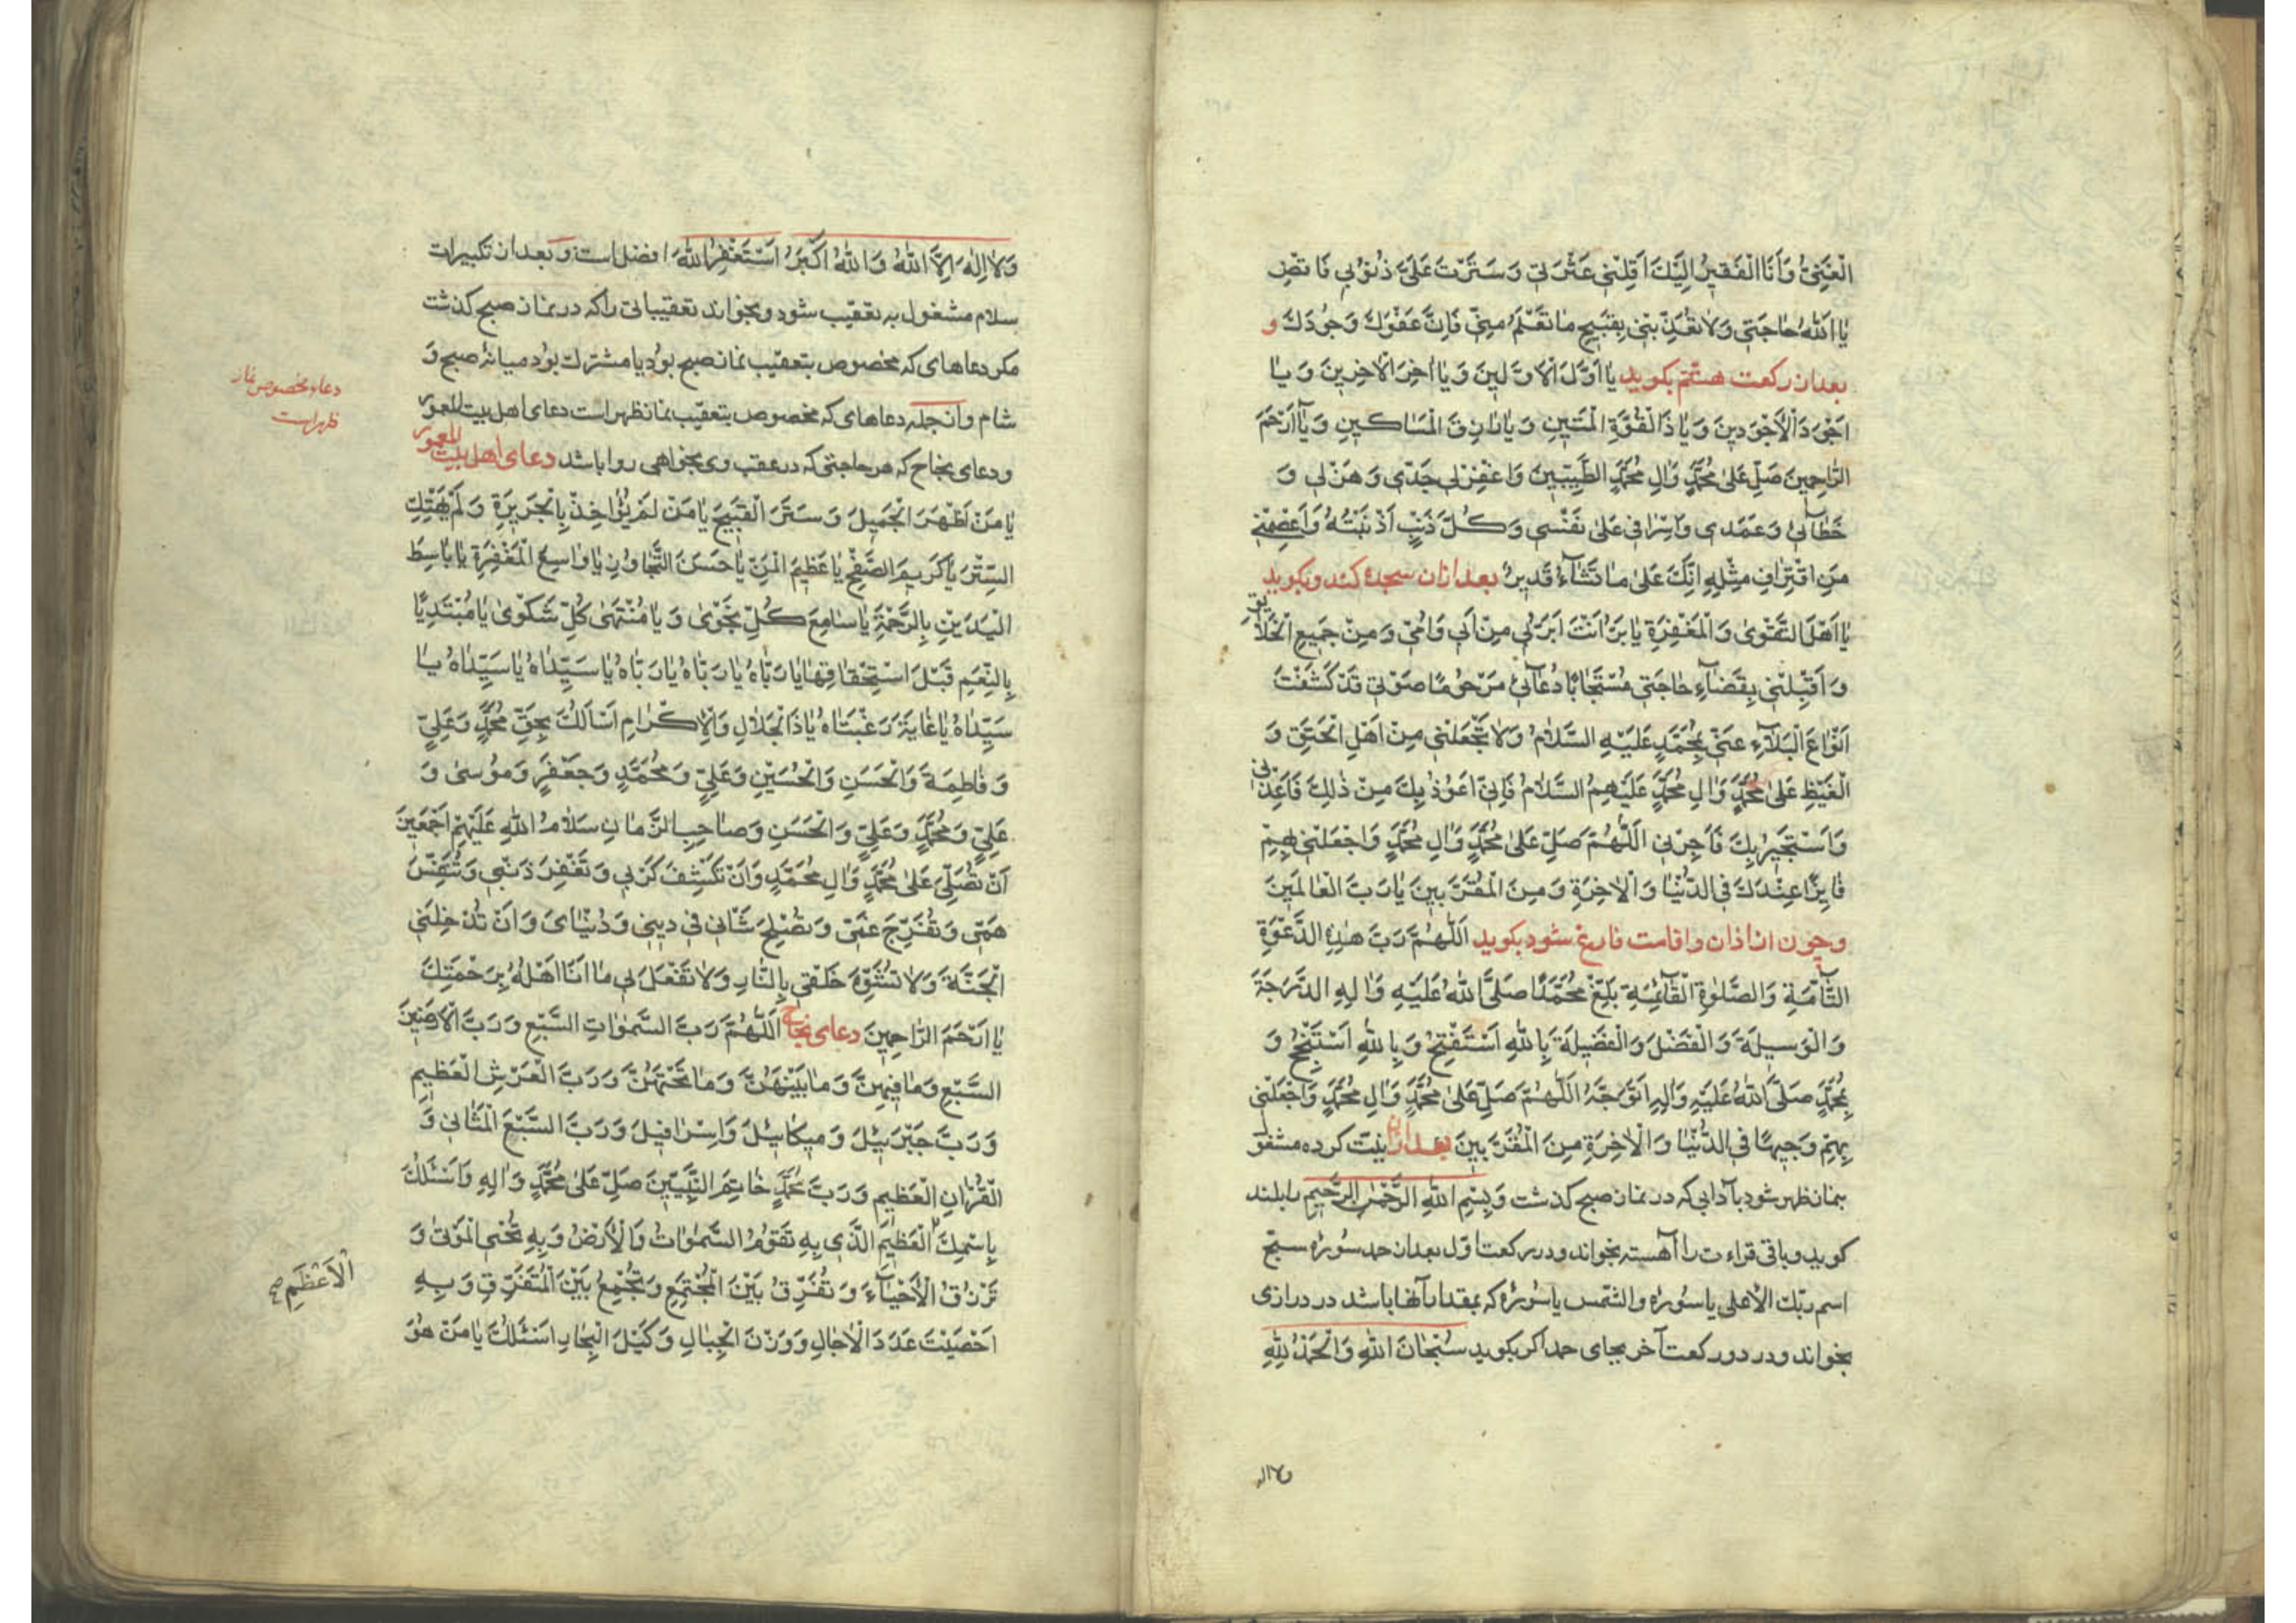 الْغَنِيُّ وَاَنَا الْفَقيرُ اِلَيْكَ اَقِلْنِي عَثْرَتِي وَسَتَرْتَ عَلَيَّ ذُنُوبِي فَاقْضِ
يٰا اَللّٰهُ حٰاجَتِي وَلٰا تُعَذِّبْنِي بِقَبيحِ مٰا تَعْلَمُ مِنّي فَاِنَّ عَفْوَكَ وَجُودَكَ و
بعد از ركعت هشتم بكويد يٰا اَوَّلَ الْاَوَّلينَ وَيٰا اٰخِرَ الْاٰخِرينَ وَيٰا
اَجْوَدَ الْاَجْوَدينَ وَيٰا ذَا الْقُوَّةِ الْمَتينِ وَيٰا رٰازِقَ الْمَسٰاكينِ وَيٰا اَرْحَمَ
الرّٰاحِمينَ صَلِّ عَلىٰ مُحَمَّدٍ وَاٰلِ مُحَمَّدٍ الطَّيِّبينَ وَاغْفِرْ لي جَدّي وَهَزْلي وَ
خَطٰائي وَعَمْدي وَاِسْرٰافي عَلىٰ نَفْسي وَكُلَّ ذَنْبٍ اَذْنَبْتُهُ وَاعْصِمْني
مِنِ اقْتِرٰافِ مِثْلِهِ اِنَّكَ عَلىٰ مٰا تَشٰاءُ قَديرٌ بعد از ان سجده كند و بكويد
يٰا اَهْلَ التَّقْوىٰ وَالْمَغْفِرَةِ يٰا بَرُّ اَنْتَ اَبَرُّ بي مِنْ اَبي وَاُمّي وَمِنْ جَميعِ الْخَلٰائِقِ
وَاقْبِلْني بِقَضٰاءِ حٰاجَتي مُسْتَجٰابًا دُعٰائي مَرْحُومًا صَوْتي قَدْ كَشَفْتَ
اَنْوٰاعَ الْبَلٰاءِ عَنّي بِمُحَمَّدٍ عَلَيْهِ السَّلٰامُ وَلٰا تَجْعَلْني مِنْ اَهْلِ الْحَنَقِ وَ
الْغَيْظِ عَلىٰ مُحَمَّدٍ وَاٰلِ مُحَمَّدٍ عَلَيْهِمُ السَّلٰامُ فَاِنّي اَعُوذُ بِكَ مِنْ ذٰلِكَ فَاَعِذْني
وَاَسْتَجيرُ بِكَ فَاَجِرْني اَللّٰهُمَّ صَلِّ عَلىٰ مُحَمَّدٍ وَاٰلِ مُحَمَّدٍ وَاجْعَلْني بِهِمْ
فٰايِزًا عِنْدَكَ فِي الدُّنْيٰا وَالْاٰخِرَةِ وَمِنَ الْمُقَرَّبينَ يٰا رَبَّ الْعٰالَمينَ
وچون از اذان و اقامت فارغ شود بكويد اَللّٰهُمَّ رَبَّ هٰذِهِ الدَّعْوَةِ
التّٰامَّةِ وَالصَّلٰوةِ الْقٰائِمَةِ بَلِّغْ مُحَمَّدًا صَلَّى اللّٰهُ عَلَيْهِ وَاٰلِهِ الدَّرَجَةَ
وَالْوَسيلَةَ وَالْفَضْلَ وَالْفَضيلَةَ بِاللّٰهِ اَسْتَفْتِحُ وَبِاللّٰهِ اَسْتَنْجِحُ وَ
بِمُحَمَّدٍ صَلَّى اللّٰهُ عَلَيْهِ وَاٰلِهِ اَتَوَجَّهُ اَللّٰهُمَّ صَلِّ عَلىٰ مُحَمَّدٍ وَاٰلِ مُحَمَّدٍ وَاجْعَلْني
بِهِمْ وَجيهًا فِي الدُّنْيٰا وَالْاٰخِرَةِ مِنَ الْمُقَرَّبينَ بعد از ان نيت كرده مشغول
بنماز ظهر شود بآدابي كه در نماز صبح كذشت وَبِسْمِ اللّٰهِ الرَّحْمٰنِ الرَّحيمِ را بلند
كويد و باقي قراءت را آهسته بخواند و در ركعت اول بعد از حمد سُورهٔ سبّح
اسم ربّك الاعلى يا سُورهٔ والشمس يا سُورهٔ كه بمقدار آنها باشد در درازى
بخواند و در دو ركعت آخر بجاى حمد اكر بكويد سُبْحٰانَ اللّٰهِ وَالْحَمْدُ لِلّٰهِ
ولا اله
وَلٰا اِلٰهَ اِلَّا اللّٰهُ وَاللّٰهُ اَكْبَرُ اَسْتَغْفِرُ اللّٰهَ افضل است و بعد از تكبيرات
سلام مشغول به تعقيب شود و بخواند تعقيباتى را كه در نماز صبح كذشت
مكر دعاهاى كه مخصوص بتعقيب نماز صبح بود يا مشترك بود ميانهٔ صبح وَ
شام و از جمله دعاهاى كه مخصوص بتعقيب نماز ظهر است دعاى اهل بيت المعمور
ودعاى نجاح كه هر حاجتى كه در عقب وى بخواهى روا باشد دعاى اهل بيت المعمور
يٰا مَنْ اَظْهَرَ الْجَميلَ وَسَتَرَ الْقَبيحَ يٰا مَنْ لَمْ يُؤٰاخِذْ بِالْجَريرَةِ وَلَمْ يَهْتِكِ
السِّتْرَ يٰا كَريمَ الصَّفْحِ يٰا عَظيمَ الْمَنِّ يٰا حَسَنَ التَّجٰاوُزِ يٰا وٰاسِعَ الْمَغْفِرَةِ يٰا بٰاسِطَ
الْيَدَيْنِ بِالرَّحْمَةِ يٰا سٰامِعَ كُلِّ نَجْوىٰ وَيٰا مُنْتَهىٰ كُلِّ شَكْوىٰ يٰا مُبْتَدِيًا
بِالنِّعَمِ قَبْلَ اسْتِحْقٰاقِهٰا يٰا رَبّٰاهُ يٰا رَبّٰاهُ يٰا رَبّٰاهُ يٰا سَيِّدٰاهُ يٰا سَيِّدٰاهُ يٰا
سَيِّدٰاهُ يٰا غٰايَةَ رَغْبَتٰاهُ يٰا ذَا الْجَلٰالِ وَالْاِكْرٰامِ اَسْاَلُكَ بِحَقِّ مُحَمَّدٍ وَعَلِيٍّ
وَفٰاطِمَةَ وَالْحَسَنِ وَالْحُسَيْنِ وَعَلِيٍّ وَمُحَمَّدٍ وَجَعْفَرٍ وَمُوسىٰ وَ
عَلِيٍّ وَمُحَمَّدٍ وَعَلِيٍّ وَالْحَسَنِ وَصٰاحِبِ الزَّمٰانِ سَلٰامُ اللّٰهِ عَلَيْهِمْ اَجْمَعينَ
اَنْ تُصَلِّيَ عَلىٰ مُحَمَّدٍ وَاٰلِ مُحَمَّدٍ وَاَنْ تَكْشِفَ كَرْبي وَتَغْفِرَ ذَنْبي وَتُنَفِّسَ
هَمّي وَتُفَرِّجَ غَمّي وَتُصْلِحَ شَاْني في ديني وَدُنْيٰاىَ وَاَنْ تُدْخِلَنِي
الْجَنَّةَ وَلٰا تُشَوِّهَ خَلْقي بِالنّٰارِ وَلٰا تَفْعَلَ بي مٰا اَنَا اَهْلُهُ بِرَحْمَتِكَ
يٰا اَرْحَمَ الرّٰاحِمينَ دعاى نجاح اَللّٰهُمَّ رَبَّ السَّمٰوٰاتِ السَّبْعِ وَرَبَّ الْاَرَضينَ
السَّبْعِ وَمٰا فيهِنَّ وَمٰا بَيْنَهُنَّ وَمٰا تَحْتَهُنَّ وَرَبَّ الْعَرْشِ الْعَظيمِ
وَرَبَّ جَبْرَئيلَ وَميكٰائيلَ وَاِسْرٰافيلَ وَرَبَّ السَّبْعِ الْمَثٰاني وَ
الْقُرْاٰنِ الْعَظيمِ وَرَبَّ مُحَمَّدٍ خٰاتِمِ النَّبِيّينَ صَلِّ عَلىٰ مُحَمَّدٍ وَاٰلِهِ وَاَسْئَلُكَ
بِاسْمِكَ الْعَظيمِ الَّذي بِهِ تَقُومُ السَّمٰوٰاتُ وَالْاَرْضُ وَبِهِ تُحْيِي الْمَوْتىٰ وَ
تَرْزُقُ الْاَحْيٰاءَ وَتُفَرِّقُ بَيْنَ الْمُجْتَمِعِ وَتَجْمَعُ بَيْنَ الْمُتَفَرِّقِ وَبِهِ
اَحْصَيْتَ عَدَدَ الْاٰجٰالِ وَوَزْنَ الْجِبٰالِ وَكَيْلَ الْبِحٰارِ اَسْئَلُكَ يٰا مَنْ هُوَ
دعاء مخصوص نماز
ظهر است
الْاَعْظَمِ صح